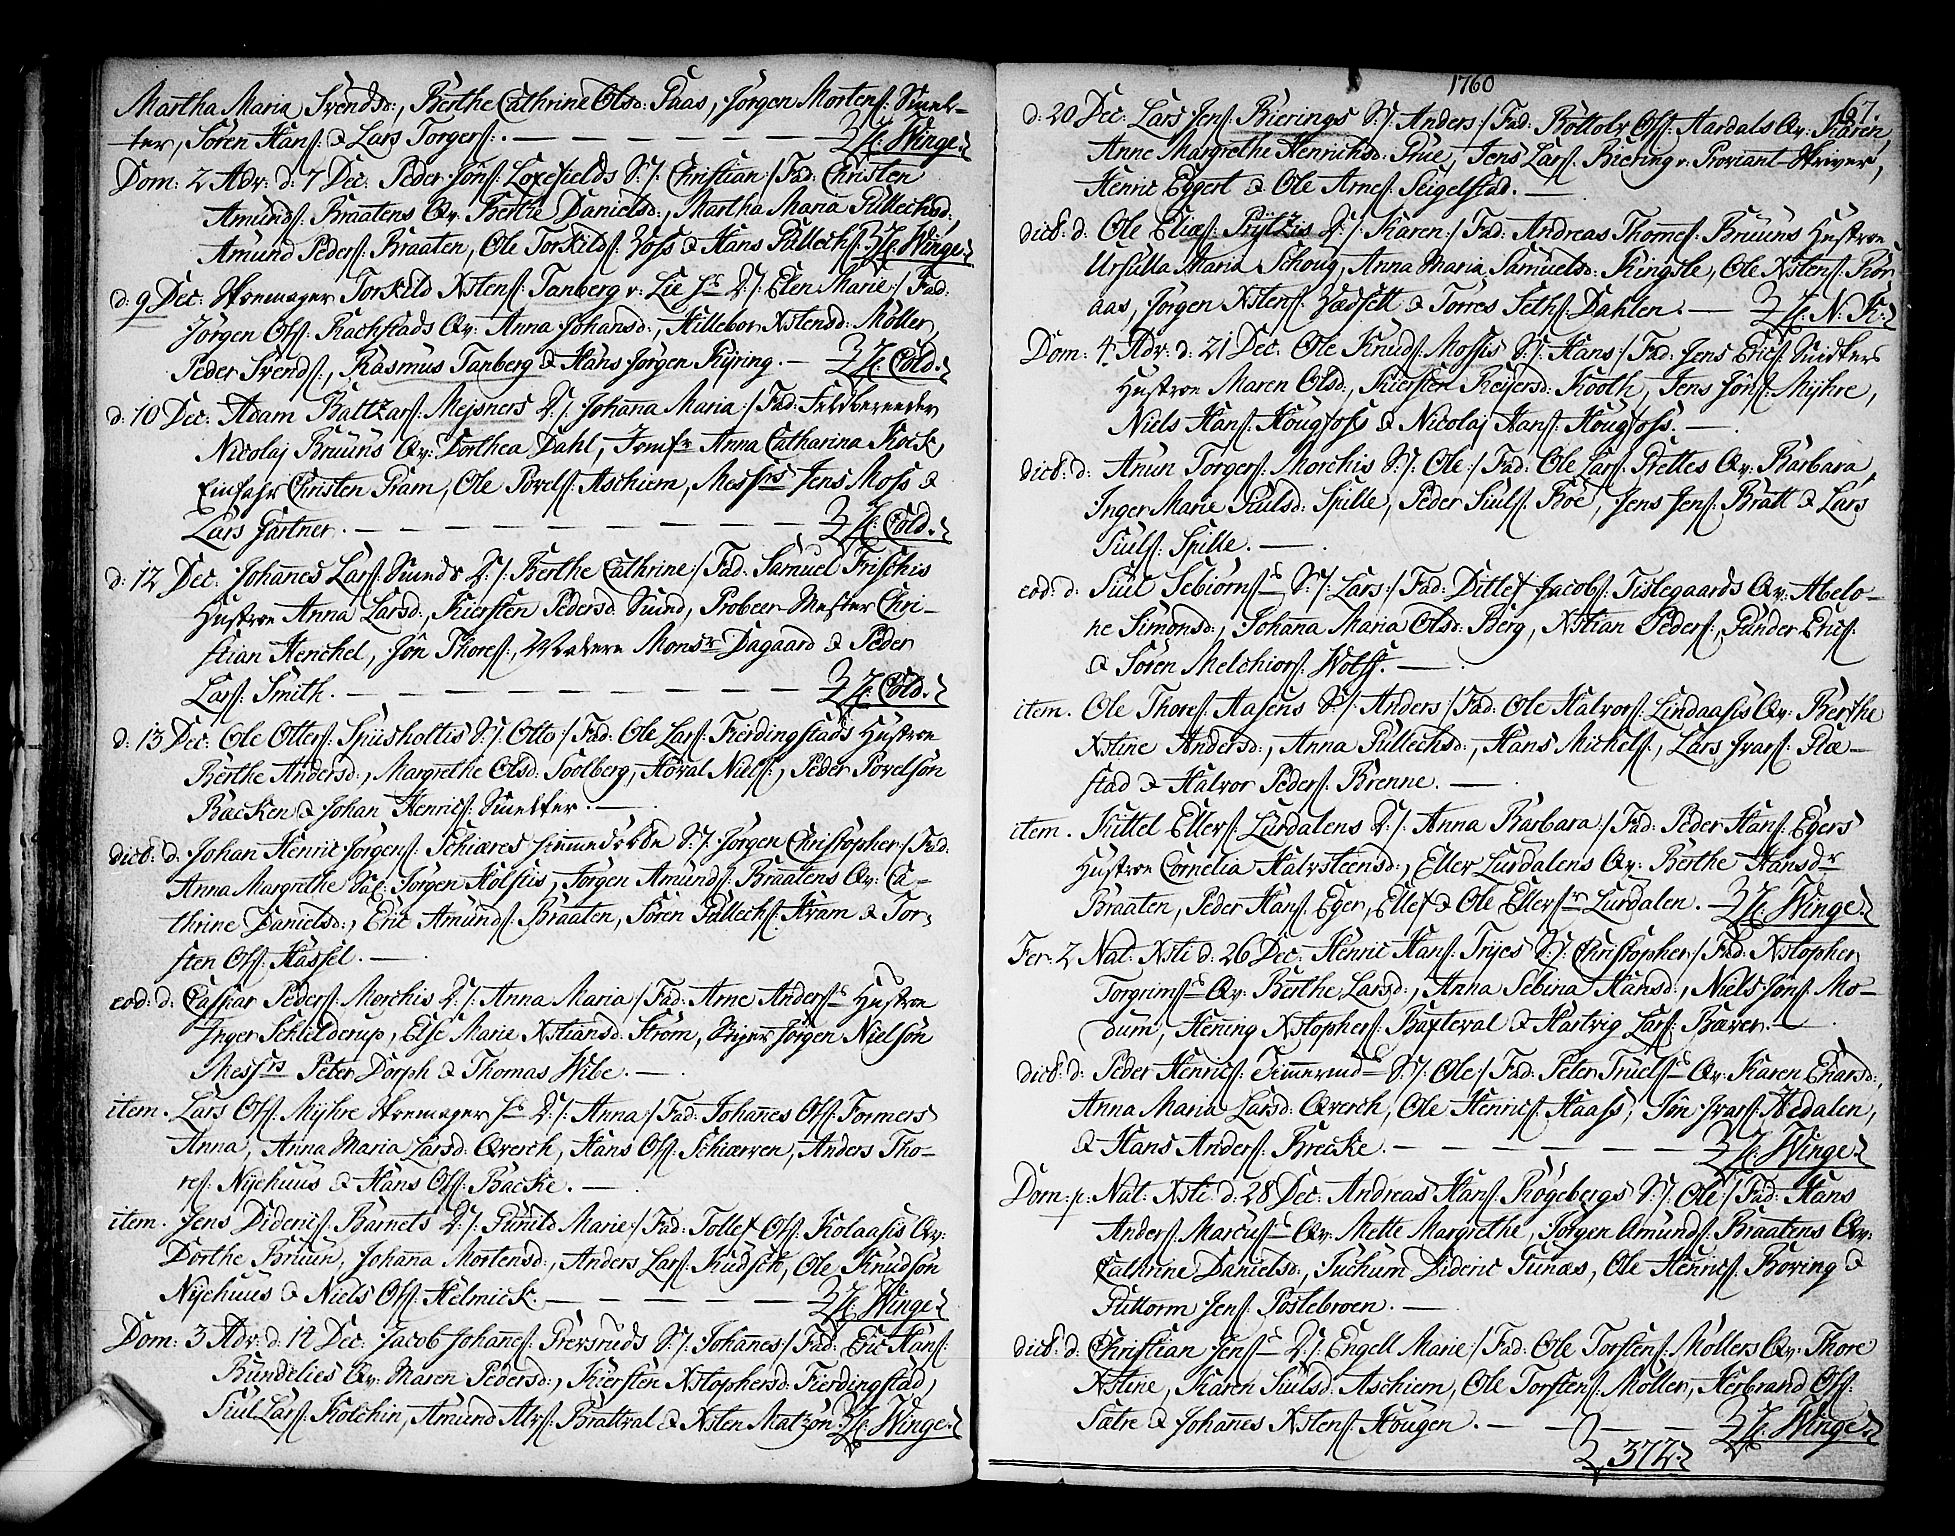 Martha Maria Svendsd:, Berthe Cathrine Olsd: Saas, Jörgen Mortens: Smel-
ter, Sören Hans: & Lars Torgers:. — H: Winge.
Dom: 2 Adv: d: 7 Dec: Peder Jöns: Loxefields S:/: Christian:/ Fad: Christen
Amunds: Braatens Qv: Berthe Danielsd:, Martha Maria Pullechsd:,
Amund Peders: Braaten, Ole Torkilds: Voss & Hans Pullechs: H: Winge.
d: 9 Dec: Skomager Torkild Xstens: Tanberg v: Lie D:/: Elen Marie:/ Fad:
Jörgen Ols: Rachstads Qv: Anna Johansd:, Hilleborr Xstensd: Möller,
Peder Svends:, Rasmus Tanberg & Hans Jörgen Kyring. — H: Cold.
d: 10 Dec: Adam Baltzars: Mejsners D:/: Johanna Maria:/ Fad: Feldbereeder
Nicolaj Bruuns Qv: Dorthea Dahl, Jomfr Anna Catharina Kock,
Einfahr Christen Pram, Ole Povels: Aschiem, Messrs Jens Moss &
Lars Gartner. — H: Cold.
d: 12 Dec: Johanes Lars: Smeds D:/: Berthe Cathrine:/ Fad: Samuel Frischis
Hustroe Anna Larsd:, Kiersten Pedersd: Smed, Probeer Mester Chri-
stian Henchel, Jön Thores:, Monsr Dagaard & Peder
Lars: Smith. — H: Cold.
d: 13 Dec: Ole Otters: Spusholtis S:/: Otto:/ Fad: Ole Lars: Fierdingstads Hustroe
Berthe Andersd:, Margrethe Olsd: Soolberg, Hoval Niels:, Peder Povelsön
Backen & Johan Henrics: Smelter. —
dict: d: Johan Henric Jörgens: Schiæres S:/: Jörgen Christopher:/ Fad:
Anna Margrethe Sal: Jörgen Holsts, Jörgen Amunds: Braatens Qv: Ca-
thrine Danielsd:, Eric Amunds: Braaten, Sören Pullechs: Kram & Tor-
sten Ols: Hassel. —
eod: d: Caspar Peders: Morchis D:/: Anna Maria:/ Fad: Arne Anders: Hustroe
Inger Schielderup, Else Marie Xstiansd: Ström, Jörgen Nielsön
Messrs Peter Dorph & Thomas Wibe. —
item. Lars Ols: Myhre Skomager D:/: Anna:/ Fad: Johanes Ols: Formers
Anna, Anna Maria Larsd: Qverch, Hans Ols: Schiærven, Anders Tho-
res: Nyehuus & Hans Ols: Backe. —
item. Jens Diderics: Barnets D:/: Gunild Marie:/ Fad: Tollef Ols: Kolaasis Qv:
Dorthe Bruun, Johana Mortensd:, Anders Lars: Kudsk, Ole Knudsön
Nyehuus & Niels Ols: Helmick. — H: Winge.
Dom: 3 Adv: d: 14 Dec: Jacob Johanes: Prersruds S:/: Johanes:/ Fad: Eric Hans:
Bundelies Qv: Maren Pedersd:, Kiersten Xstophersd: Fierdingstad,
Siul Lars: Kolchin, Amund Alvs: Brattval & Xsten Matzön H: Winge.
1760
67.
d: 20 Dec: Lars Jens: Bierings S:/: Anders:/ Fad: Bottolv Ols: Aardals Qv: Karen
Anne Margrethe Henrichsd: Prue, Jens Lars: Biering v: Proviant Skriver,
Henric Eggert & Ole Arnes: Seigelstad. —
dict: d: Ole Elias: Prytzis D:/: Karen:/ Fad: Andreas Thomes: Bruuns Hustroe
Ursulla Maria Schoug, Anna Maria Samuelsd: Kingsle, Ole Xstens: Rör-
aas, Jörgen Xstens: Vadsett & Torres Seths: Dahlen. — H: N: K:
Dom: 4 Adv: d: 21 Dec: Ole Knuds: Mossis S:/: Hans:/ Fad: Jens Erics: Snidkers
Hustroe Maren Olsd:, Kiersten Reyersd: Kooth, Jens Jöns: Myhre,
Niels Hans: Hougfoss & Nicolaj Hans: Hougfoss. —
dict: d: Anun Torgers: Morchis S:/: Ole:/ Fad: Ole Lars: Prettes Qv: Barbara,
Inger Marie Siulsd: Spille, Peder Siuls: Boe, Jens Jens: Bratt & Lars
Siuls: Spille. —
eod: d: Siul Sebiörns: S:/: Lars:/ Fad: Ditlef Jacobs: Tislegaards Qv: Abelo-
ne Simonsd:, Johana Maria Olsd: Berg, Xstian Peders:, Gunder Erics:
& Sören Melchiors: Wolff. —
item. Ole Thores: Aasens S:/: Anders:/ Fad: Ole Halvors: Lindaasis Qv: Berthe
Xstine Andersd:, Anna Pullechsd:, Hans Michels:, Lars Ivars: Plæ-
stad & Halvor Peders: Brenne. —
item. Kittel Ellefs: Lurdalens D:/: Anna Barbara:/ Fad: Peder Hans: Egers
Hustroe Cornelia Halvsteensd:, Ellef Lurdalens Qv: Berthe Hansdr
Braaten, Peder Hans: Eger, Ellef & Ole Ellefs: Lurdalen. — H: Winge.
Fer: 2 Nat: Xsti d: 26 Dec: Henric Hans: Tryes S:/: Christopher:/ Fad: Xstopher
Torgrims: Qv: Berthe Larsd:, Anna Sebina Hansd:, Niels Jöns: Mo-
dum, Hening Xstophers: Baxteval & Hartvig Lars: Bæver. —
dict: d: Peder Henrics: S:/: Ole:/ Fad: Peter Truels: Qv: Karen Enarsd:,
Anna Maria Larsd: Qverch, Ole Henrics: Haass, Jön Ivars: Aedalen,
& Hans Anders: Brecke. — H: Winge.
Dom: p: Nat: Xsti d: 28 Dec: Andreas Hans: Rögebergs S:/: Ole:/ Fad: Hans
Anders: Marcus: Qv: Mette Margrethe, Jörgen Amunds: Braatens Qv:
Cathrine Danielsd:, Juchum Dideric Funæs, Ole Henrics: Boring &
Guttorm Jens: Postebroen. —
dict: d: Christian Jens: D:/: Engell Marie:/ Fad: Ole Torstens: Möllers Qv: Thore
Xstine, Karen Siulsd: Aschiem, Ole Torstens: Möller, Herbrand Ols:
Satre & Johanes Xstens: Hougen. — H: Winge.
372.